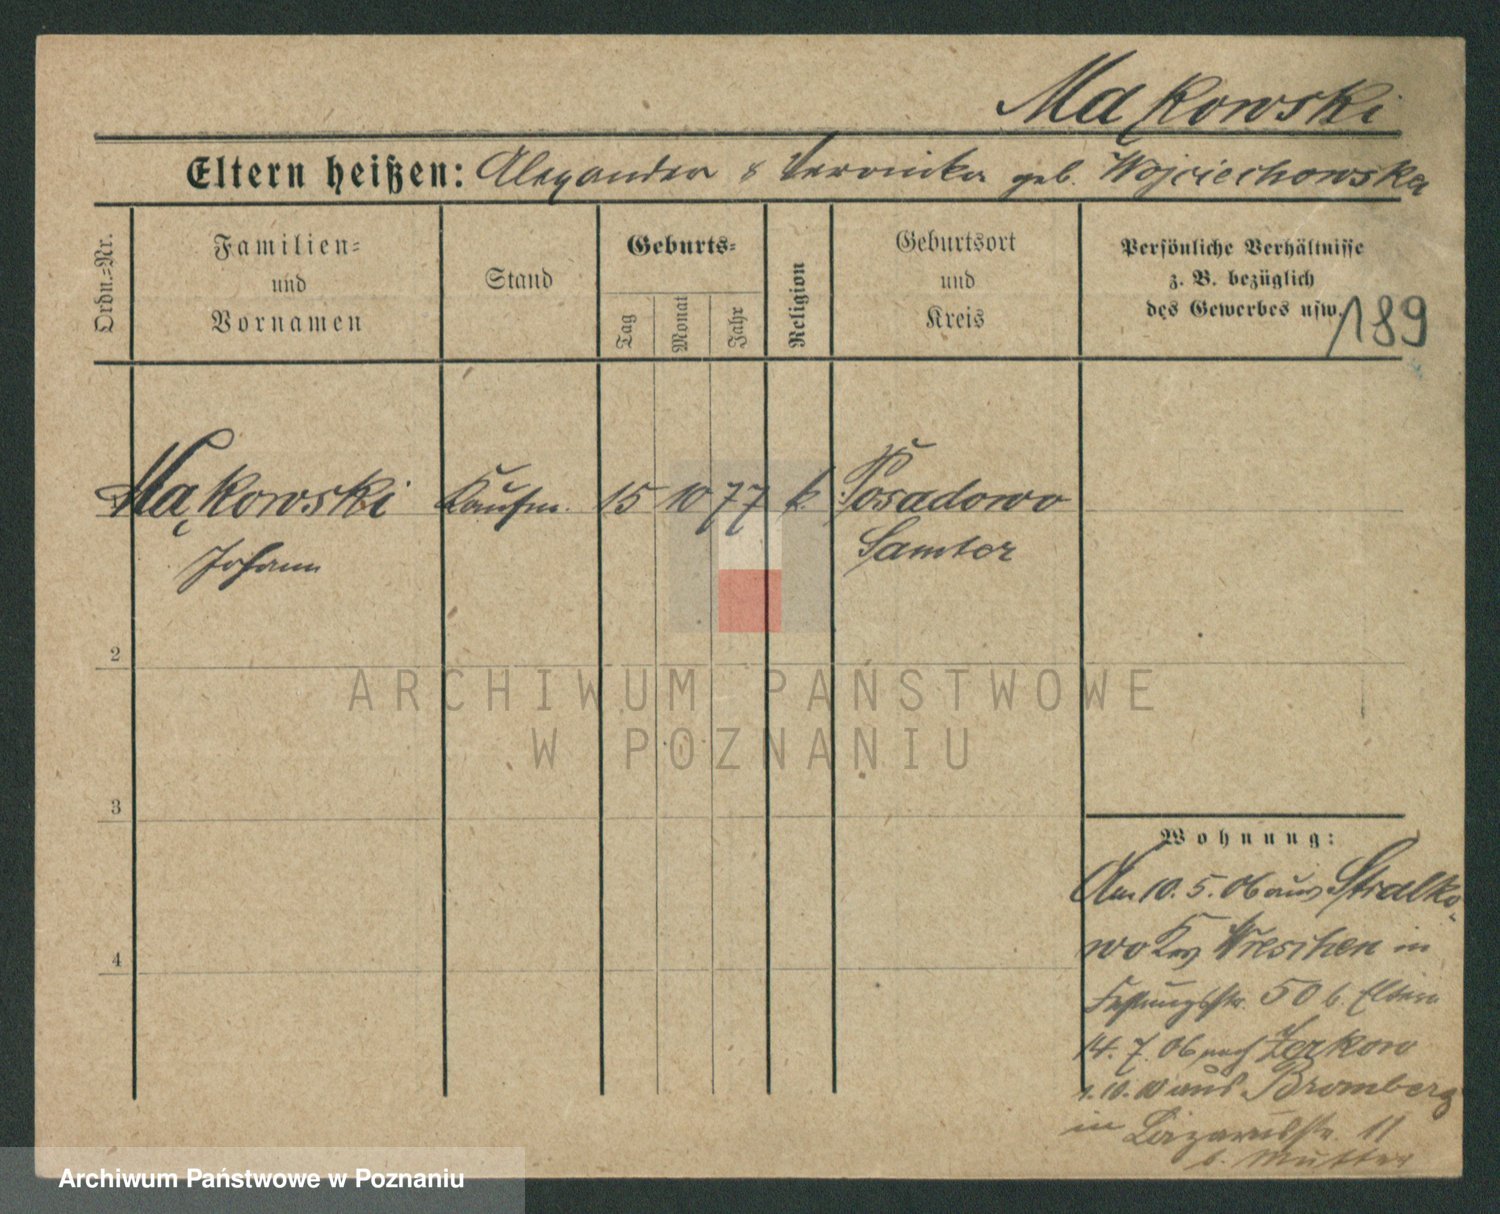 Mąkowski
Eltern heißen: Alexander & Veronika geb. Wojciechowska
Ordn.=Nr.
Familien=
und
Vornamen
Stand
Geburts=
Tag
Monat
Jahr
Religion
Geburtsort
und
Kreis
Persönliche Verhältnisse
z. B. bezüglich
des Gewerbes usw.
189
Mąkowski Kaufm. 15 10 77 k. Posadowo
Johann Samter
2
ARCHIWUM PAŃSTWOWE
W POZNANIU
3
Wohnung:
Am 10. 5. 06 aus Stralko-
wo Krs Wreschen in
Festungsstr. 50 b. Eltern
4
14. 7. 06 nach Zerkow
1. 10. 10 aus Bromberg
in Lazarusstr. 11
b. Mutter
Archiwum Państwowe w Poznaniu